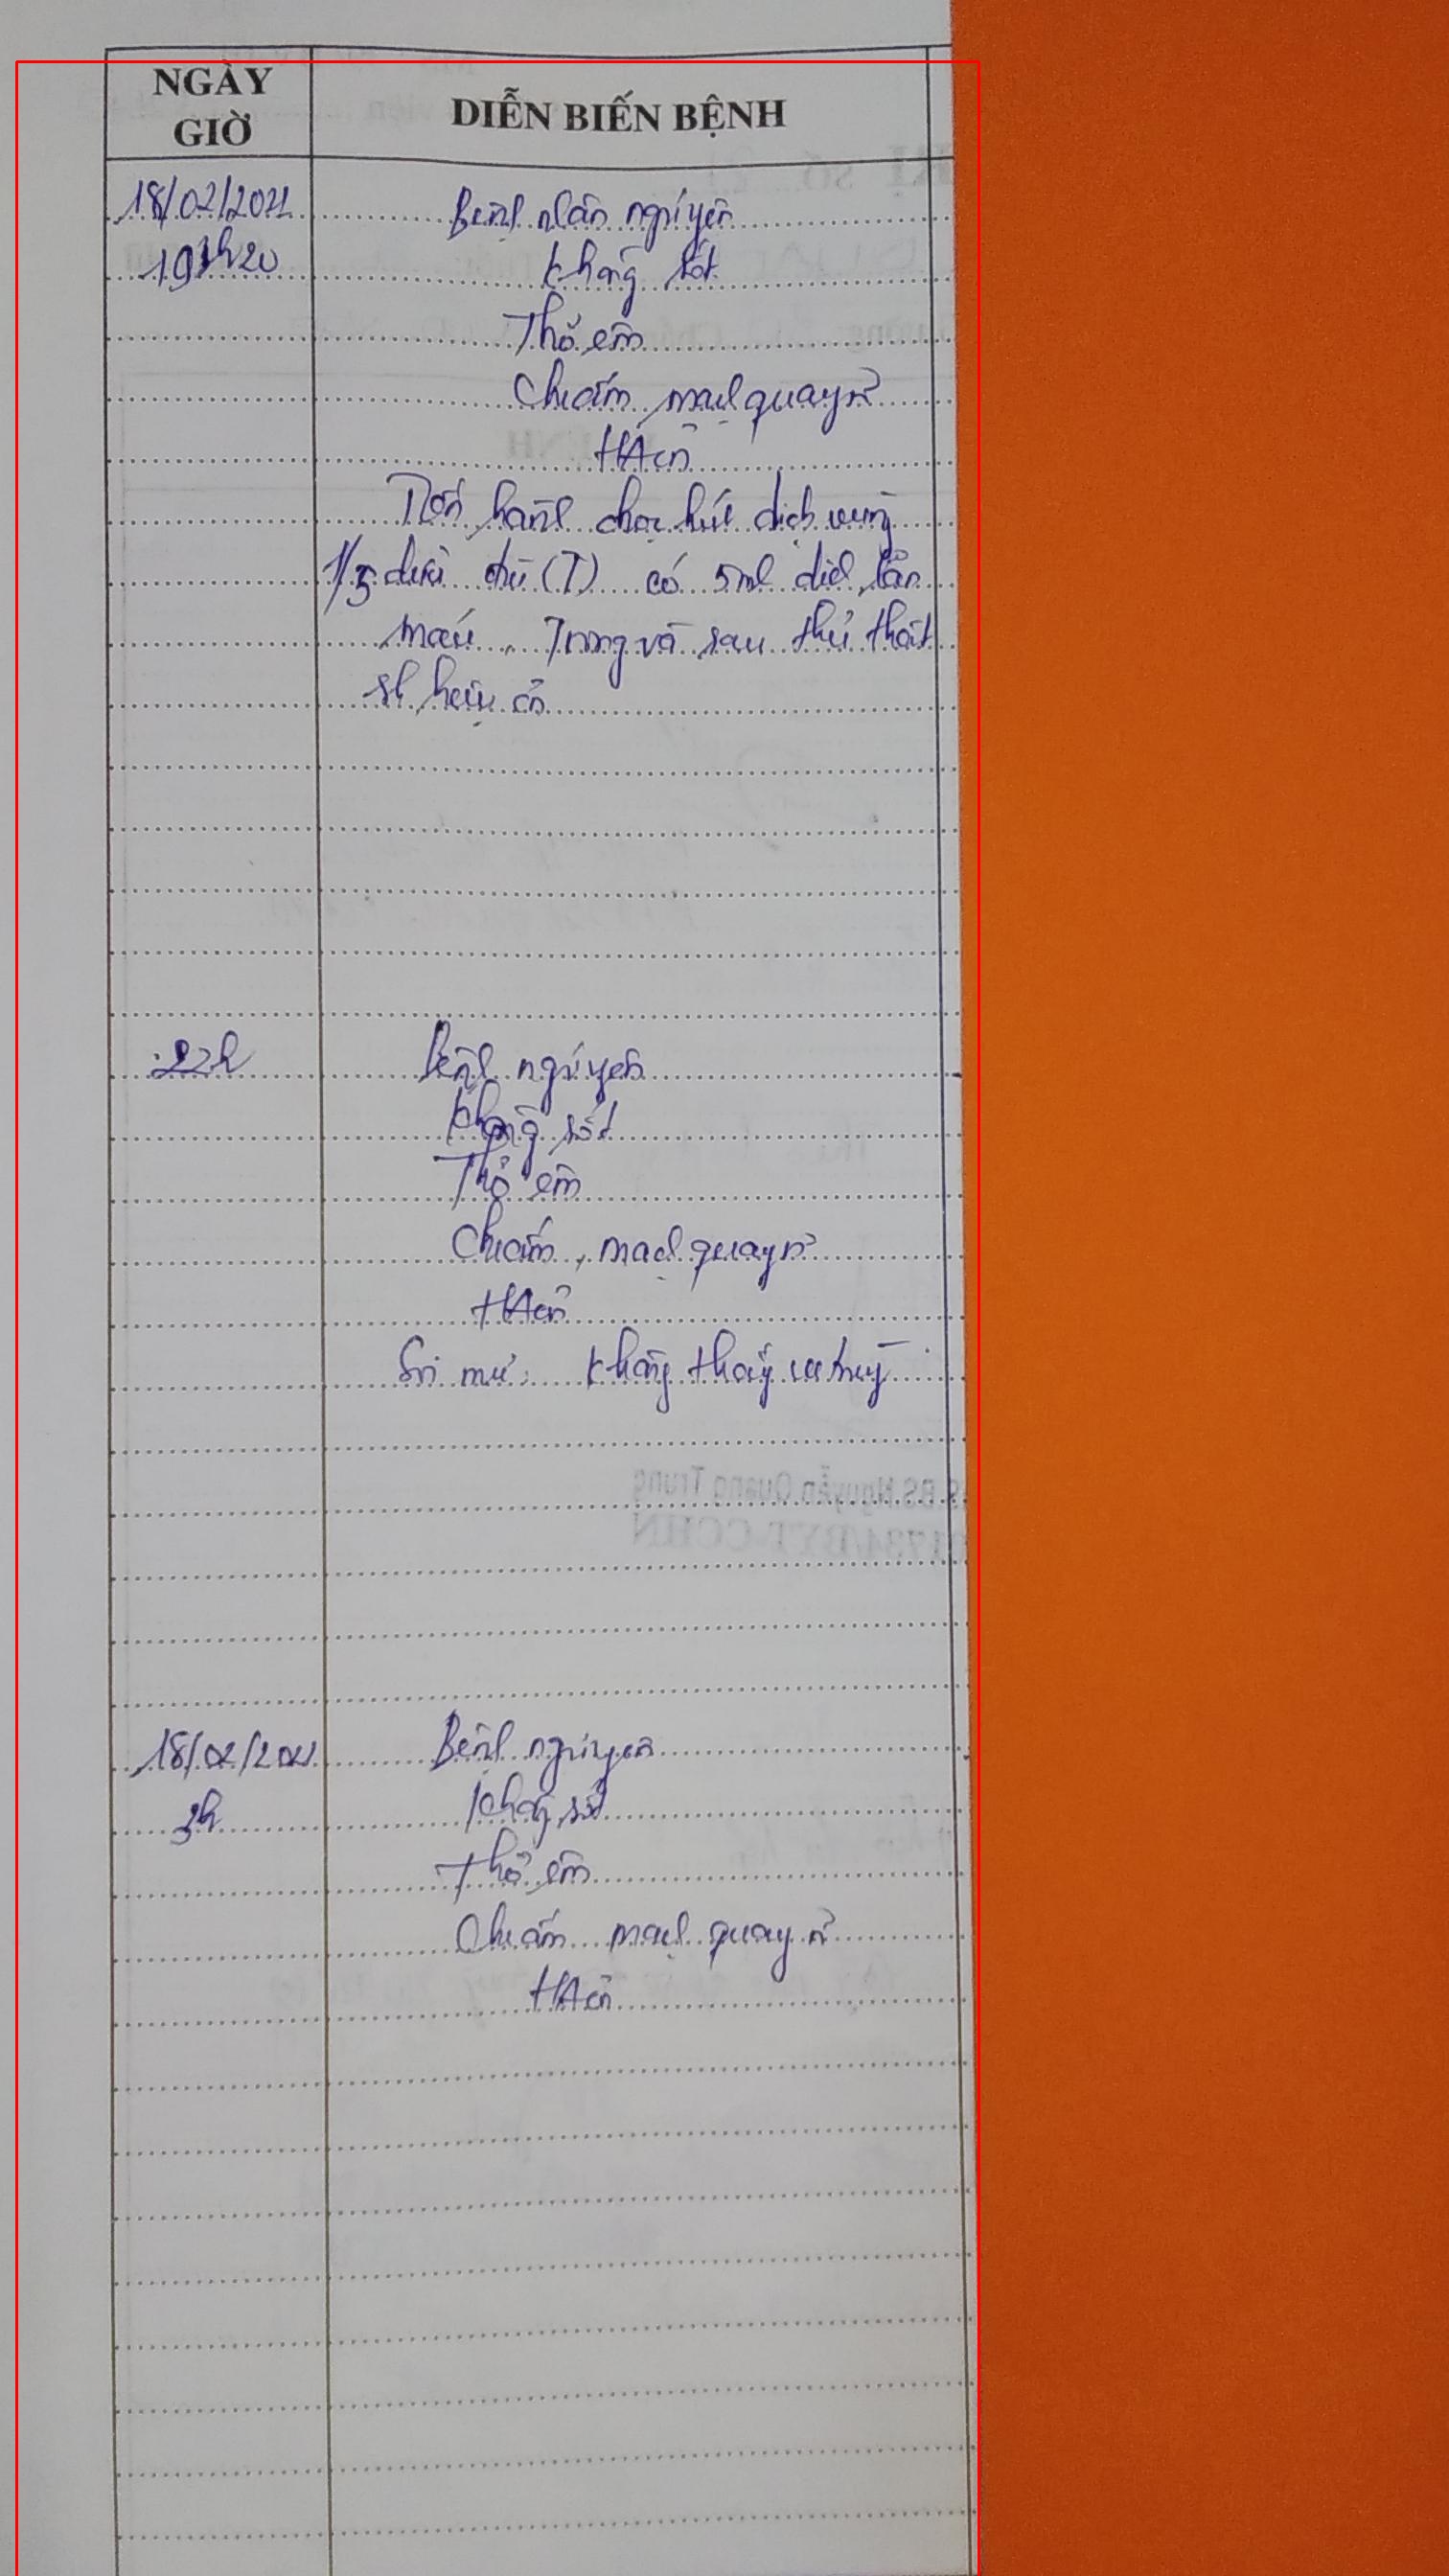 NGÀY
GIỜ
DIỄN BIẾN BỆNH
18/02/2021 Bệnh nhân ngủ yên
19h20 Không sốt
Thở êm
Chi ấm, mạch quay rõ
HA ổn
Tiến hành chọc hút dịch vùng
1/3 dưới đùi (T) có 5ml dịch lẫn
máu. Trong và sau thủ thuật
ổn
22h Bệnh ngủ yên
Không sốt
Thở êm
Chi ấm, mạch quay rõ
HA ổn
Không thấy
18/02/2021 Bệnh ngủ yên
3h Không sốt
Thở êm
Chi ấm mạch quay rõ
HA ổn
BS.Nguyễn Quang Trung
1734/BYT-CCHN